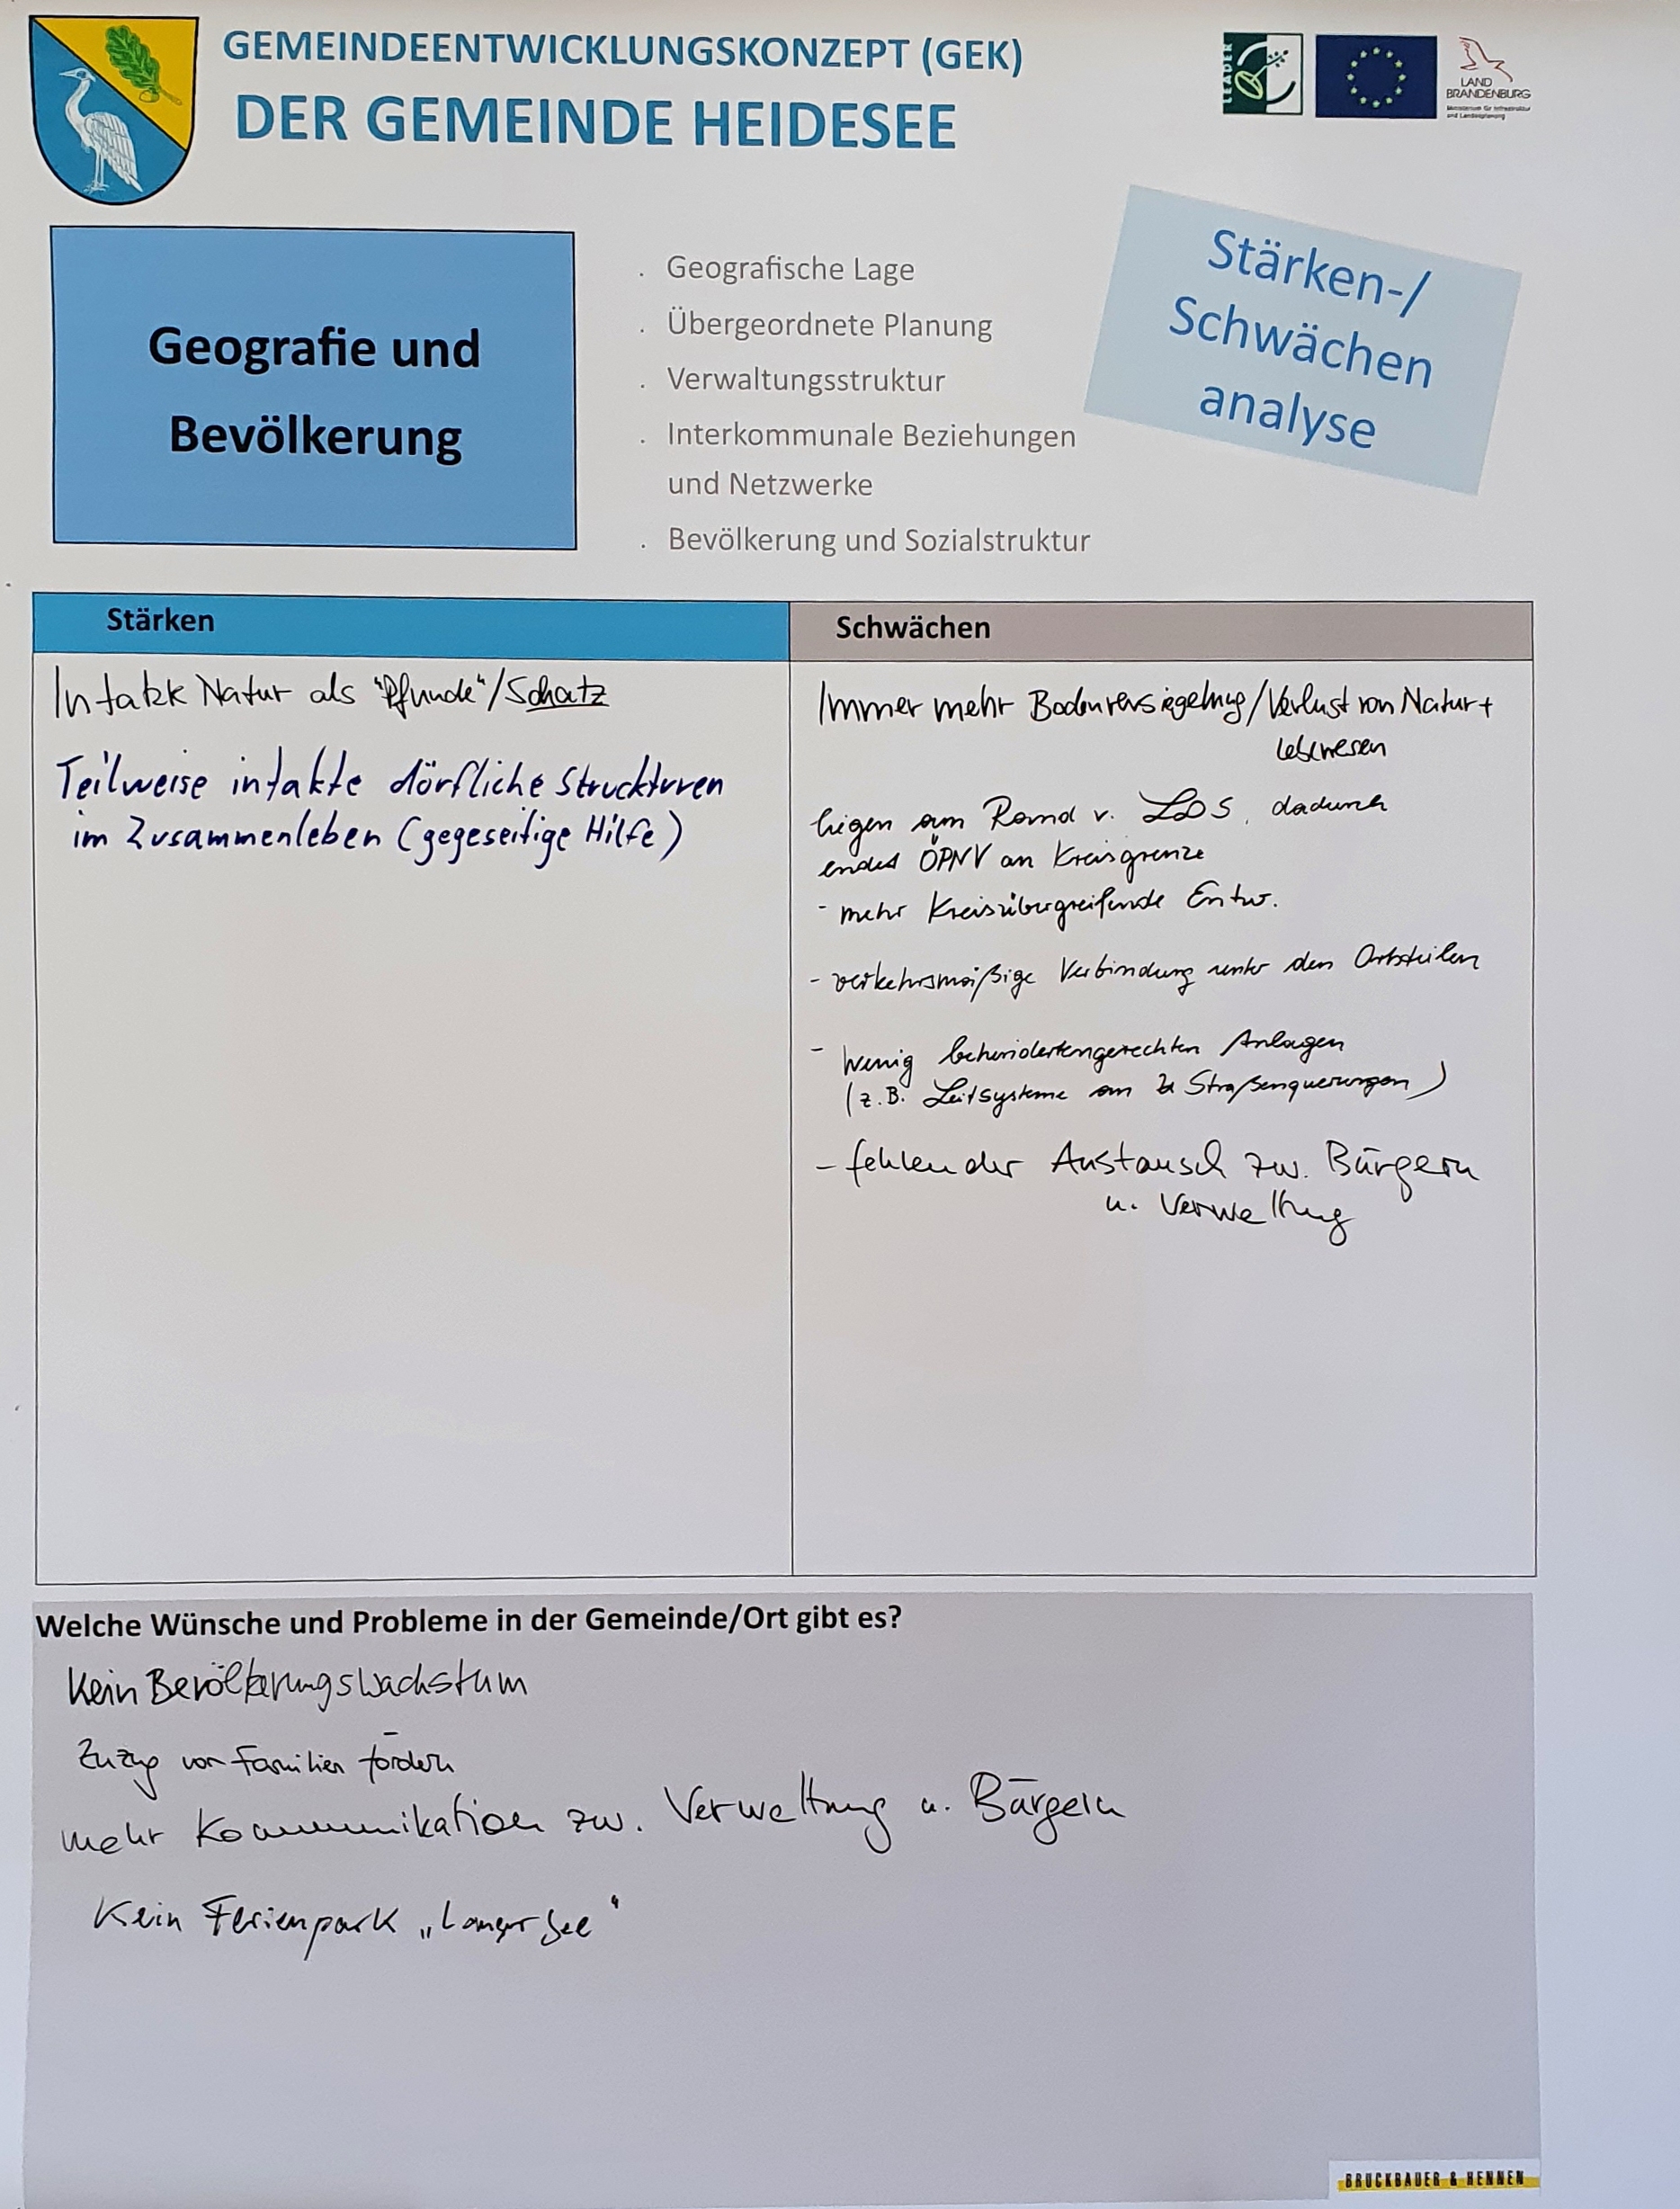 GEMEINDEENTWICKLUNGSKONZEPT (GEK)
DER GEMEINDE HEIDESEE
LEADER
LAND
BRANDENBURG
Ministerium für Infrastruktur
und Landesplanung
Geografie und
Bevölkerung
. Geografische Lage
. Übergeordnete Planung
. Verwaltungsstruktur
. Interkommunale Beziehungen
und Netzwerke
. Bevölkerung und Sozialstruktur
Stärken-/
Schwächen
analyse
Stärken
Intakte Natur als "Pfunde"/Schatz
Teilweise intakte dörfliche Struckturen
im Zusammenleben (gegeseitige Hilfe)
Schwächen
Immer mehr Bodenversiegelung/Verlust von Natur+
Lebewesen
liegen am Rand v. LDS, dadurch
endet ÖPNV an Kreisgrenze
- mehr Kreisübergreifende Entw.
- verkehrsmäßige Verbindung unter den Ortsteilen
- Wenig behindertengerechten Anlagen
(z.B. Leitsysteme an Straßenquerungen)
- fehlender Austausch zw. Bürgern
u. Verwaltung
Welche Wünsche und Probleme in der Gemeinde/Ort gibt es?
Kein Bevölkerungswachstum
Zuzug von Familien fördern
mehr Kommunikation zw. Verwaltung u. Bürgern
Kein Ferienpark „Langer See"
BRUCKBAUER & HENNEN